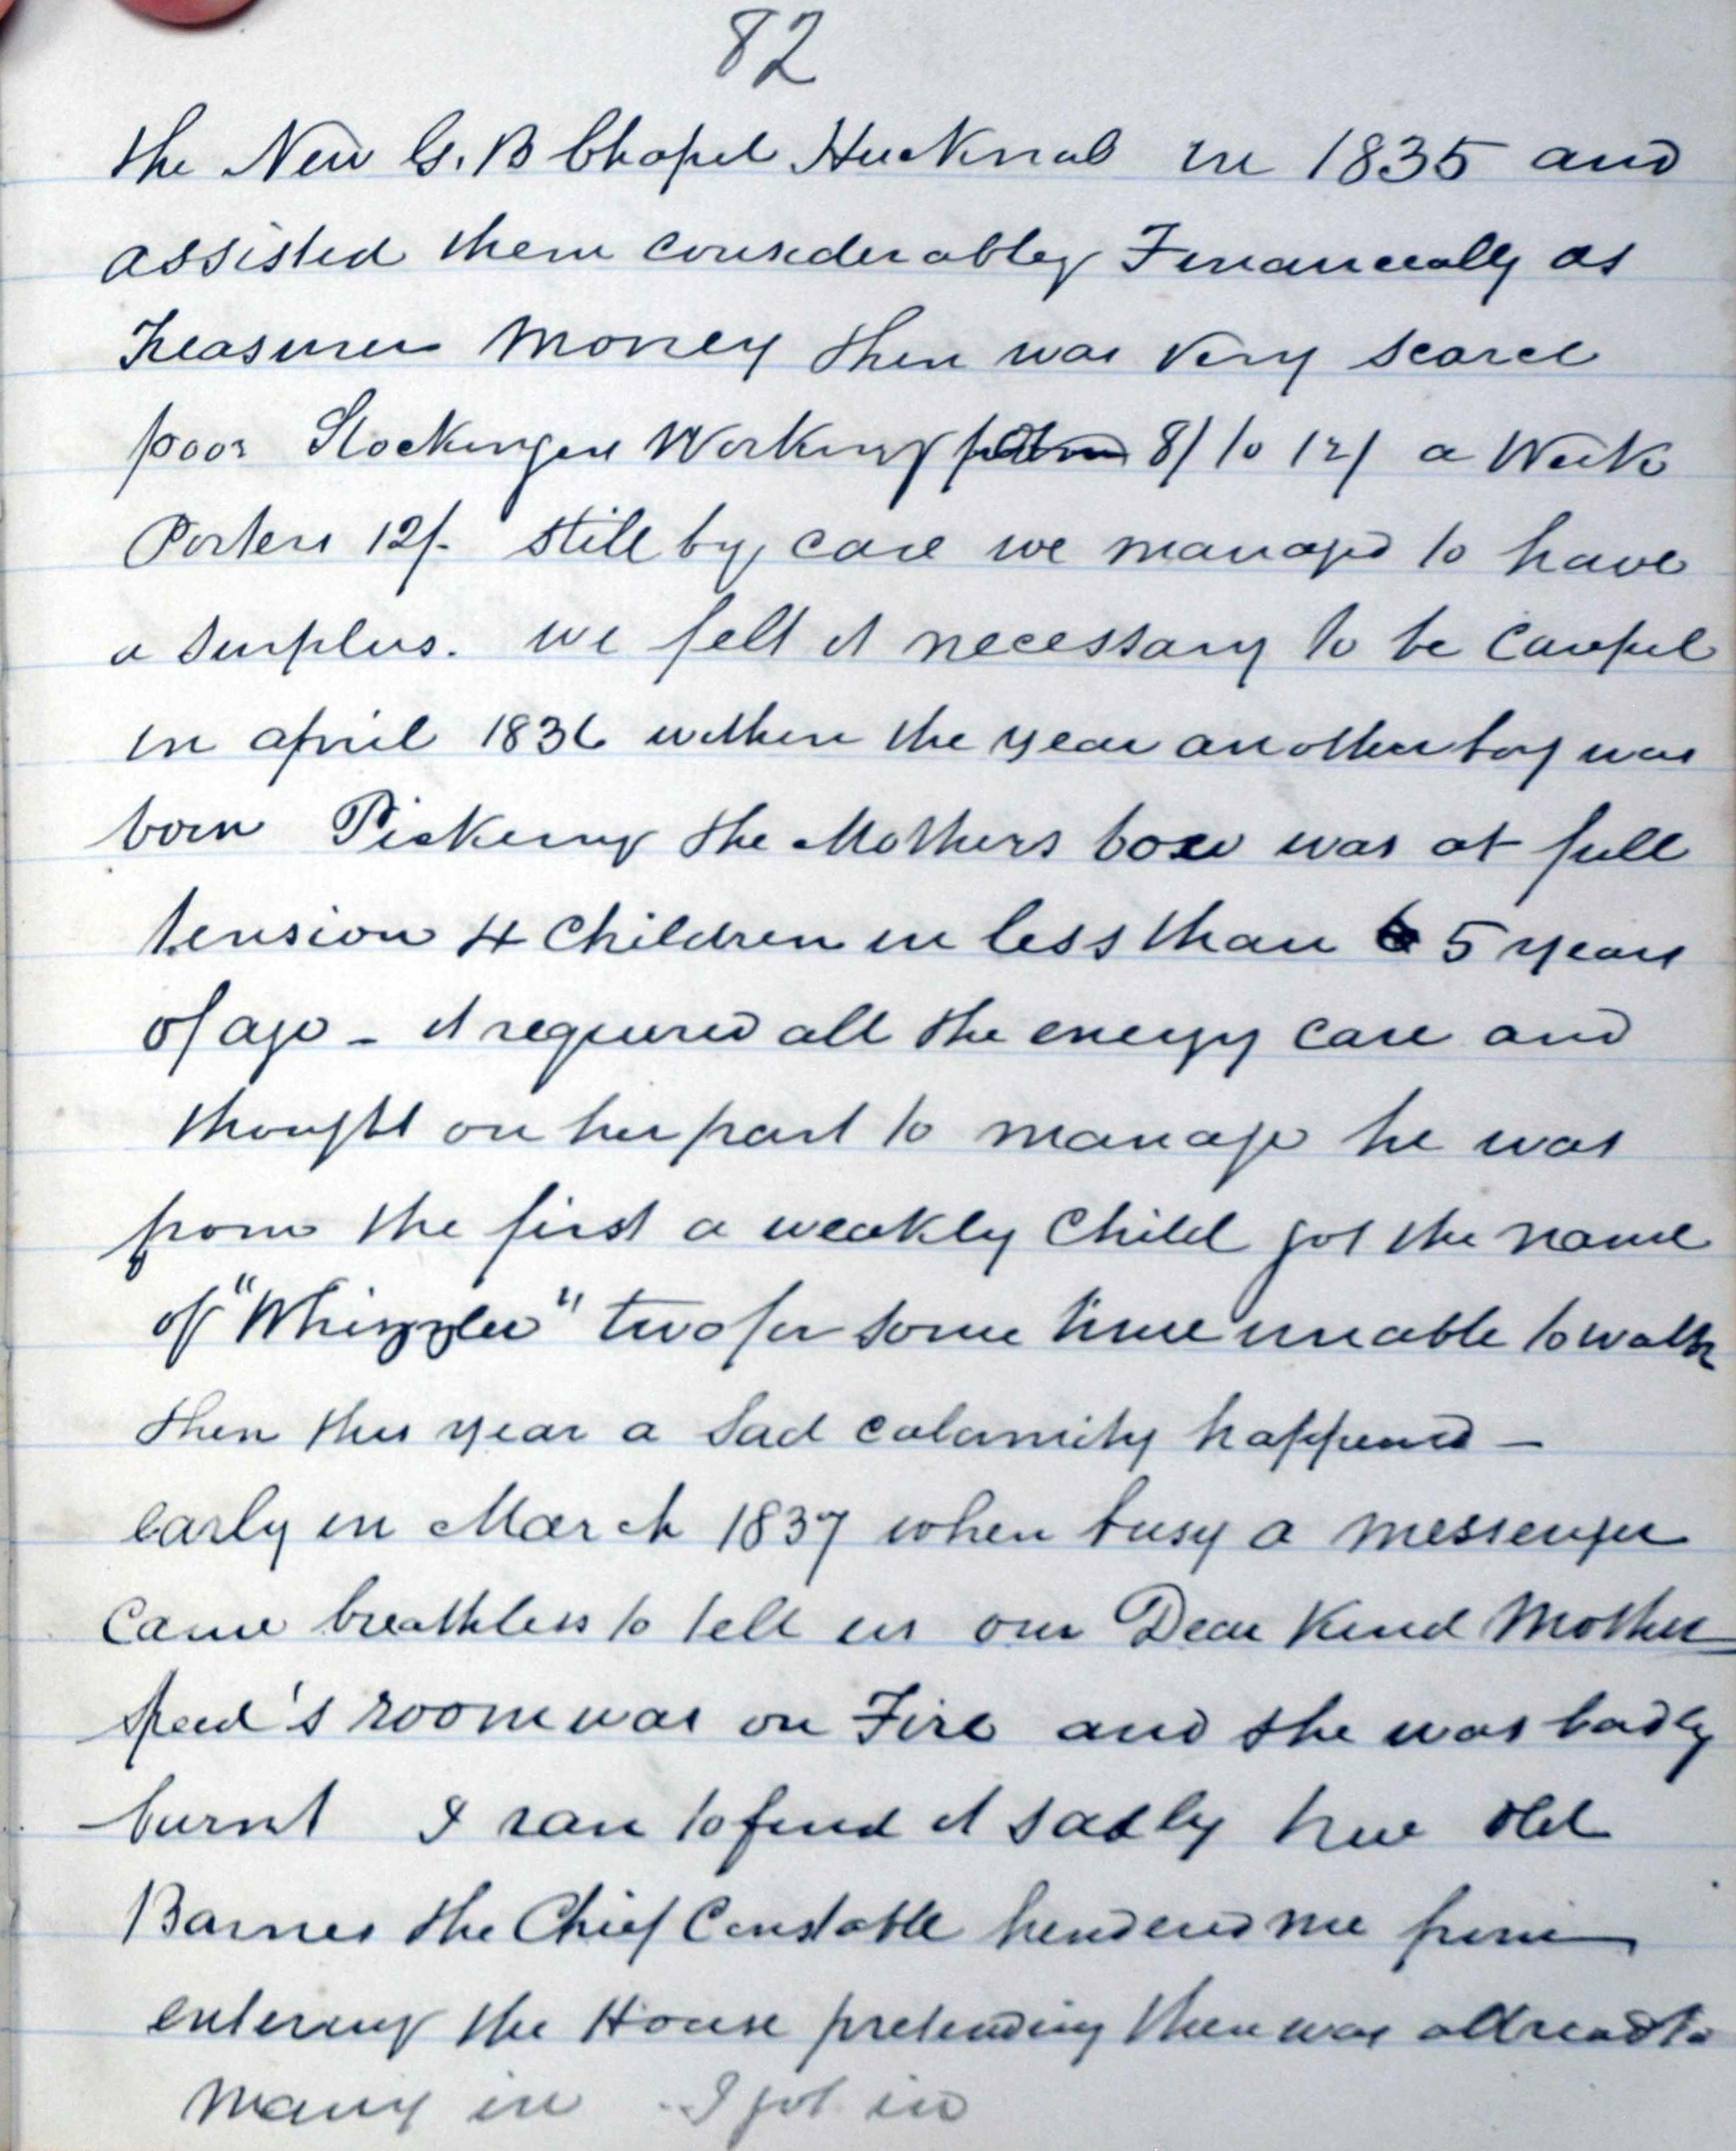 82
the New G. B Chapel Hucknal in 1835 and
assisted them considerabley Financeally as
Treasurer Money then was very scarce
poor Stockingers Working for 8/ to 12/ a Week
Porters 12/- still by care we managed to have
a surplus. we felt it necessary to be Careful
in april 1836 within the year another boy was
born Pickering the Mothers bow was at full
tension 4 Children in less than 5 years
of age - it required all the energy care and
thought on her part to manage he was
from the first a weakly Child got the name
of "Whizzler" two for some time unable to walk
then this year a Sad calamity happened -
early in March 1837 when busy a messenger
Came breathless to tell us our Dear Kind Mother
Speed's room was on Fire and she was badly
burnt I ran to find it sadly true old
Barnes the Chief Constable hendered me from
entering the House pretending there was allready to
many in I got in